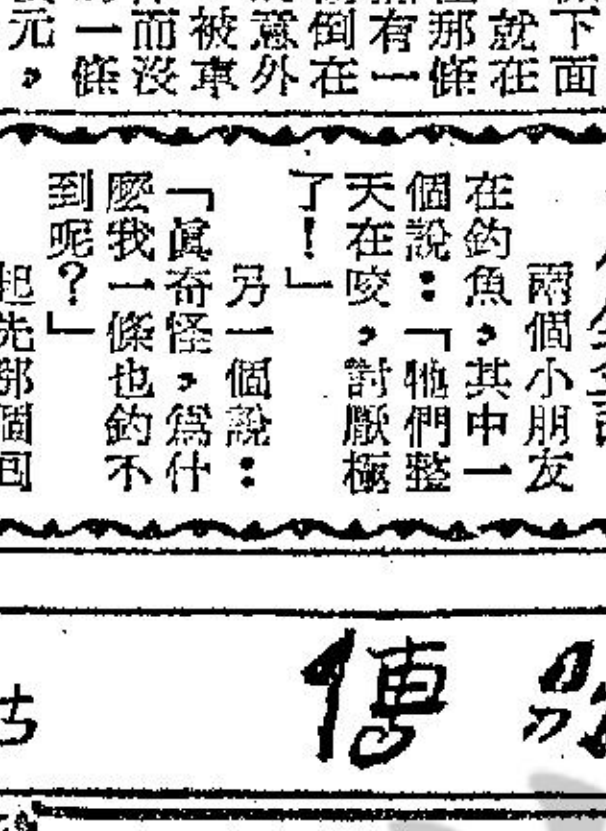 下面
就在
那條
有一
倒在
意外
被車
而沒
一條
元，
兩個小朋友
在釣魚，其中一
個說：「牠們整
天在咬，討厭極
了！」
另一個說：
「眞奇怪，爲什
麼我一條也釣不
到呢？」
起先那個回
傳